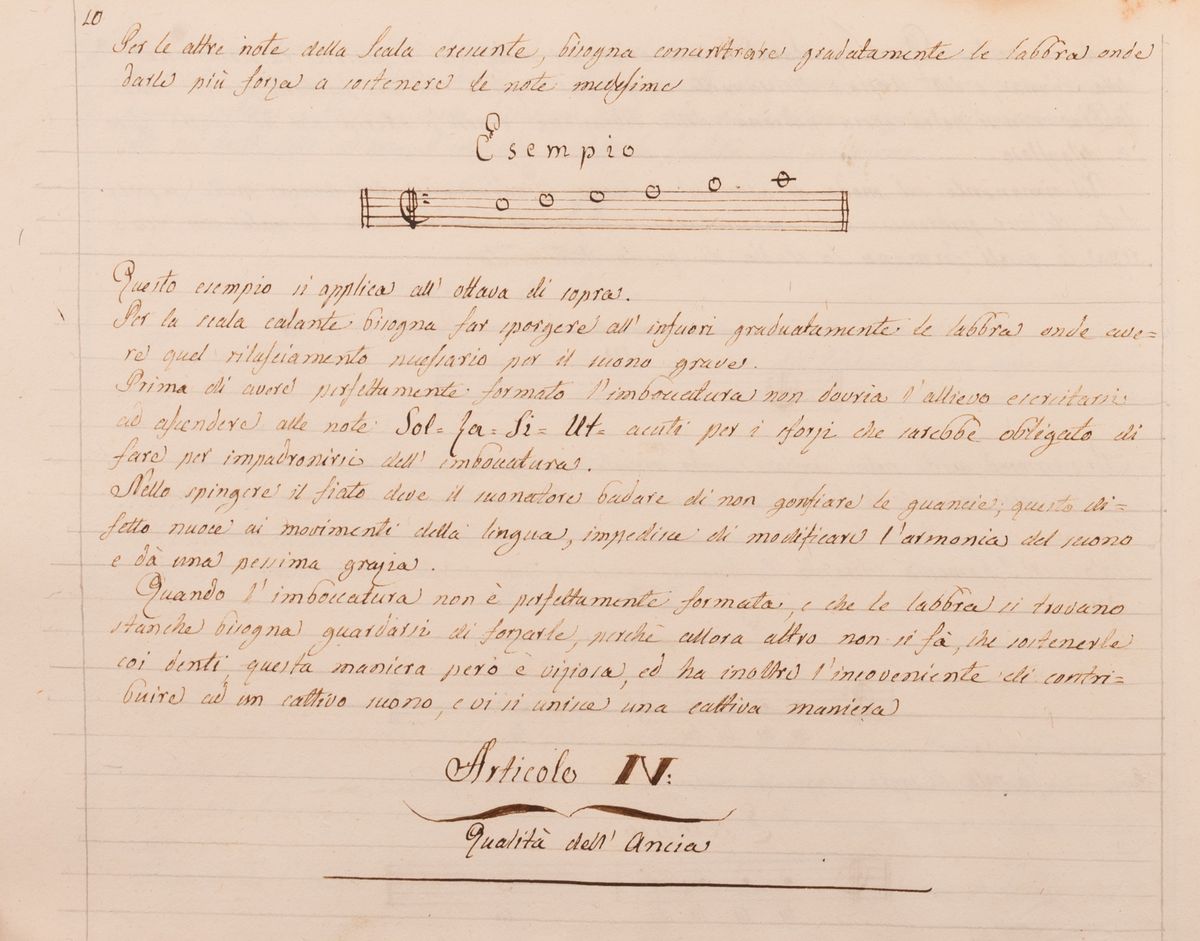 10
Per le altre note della Scala crescente, bisogna concentrare gradatamente le labbra onde
darle più forza a sostenere le note medesime
Esempio
Questo esempio si applica all' ottava di sopra.
Per la scala calante bisogna far sporgere all' infuori graduatamente le labbra onde ave=
re quel rilasciamento necessario per il suono grave.
Prima di avere perfettamente formato l'imboccatura non dovria l'allievo esercitarsi
ad ascendere alle note Sol= La= Si= Ut= acuti per i sforzi che sarebbe obligato di
fare per impadronirsi dell' imboccatura.
Nello spingere il fiato deve il suonatore badare di non gonfiare le guancie; questo di=
fetto nuoce ai movimenti della lingua, impedisce di modificare l'armonia del suono
e dà una pessima grazia.
Quando l'imboccatura non è perfettamente formata, e che le labbra si trovano
stanche bisogna guardarsi di forzarle, perchè allora altro non si fà, che sostenerle
coi denti, questa maniera però è viziosa, ed ha inoltre l'incoveniente di contri=
buire ad un cattivo suono, e vi si unisce una cattiva maniera
Articolo IV:
Qualità dell' Ancia